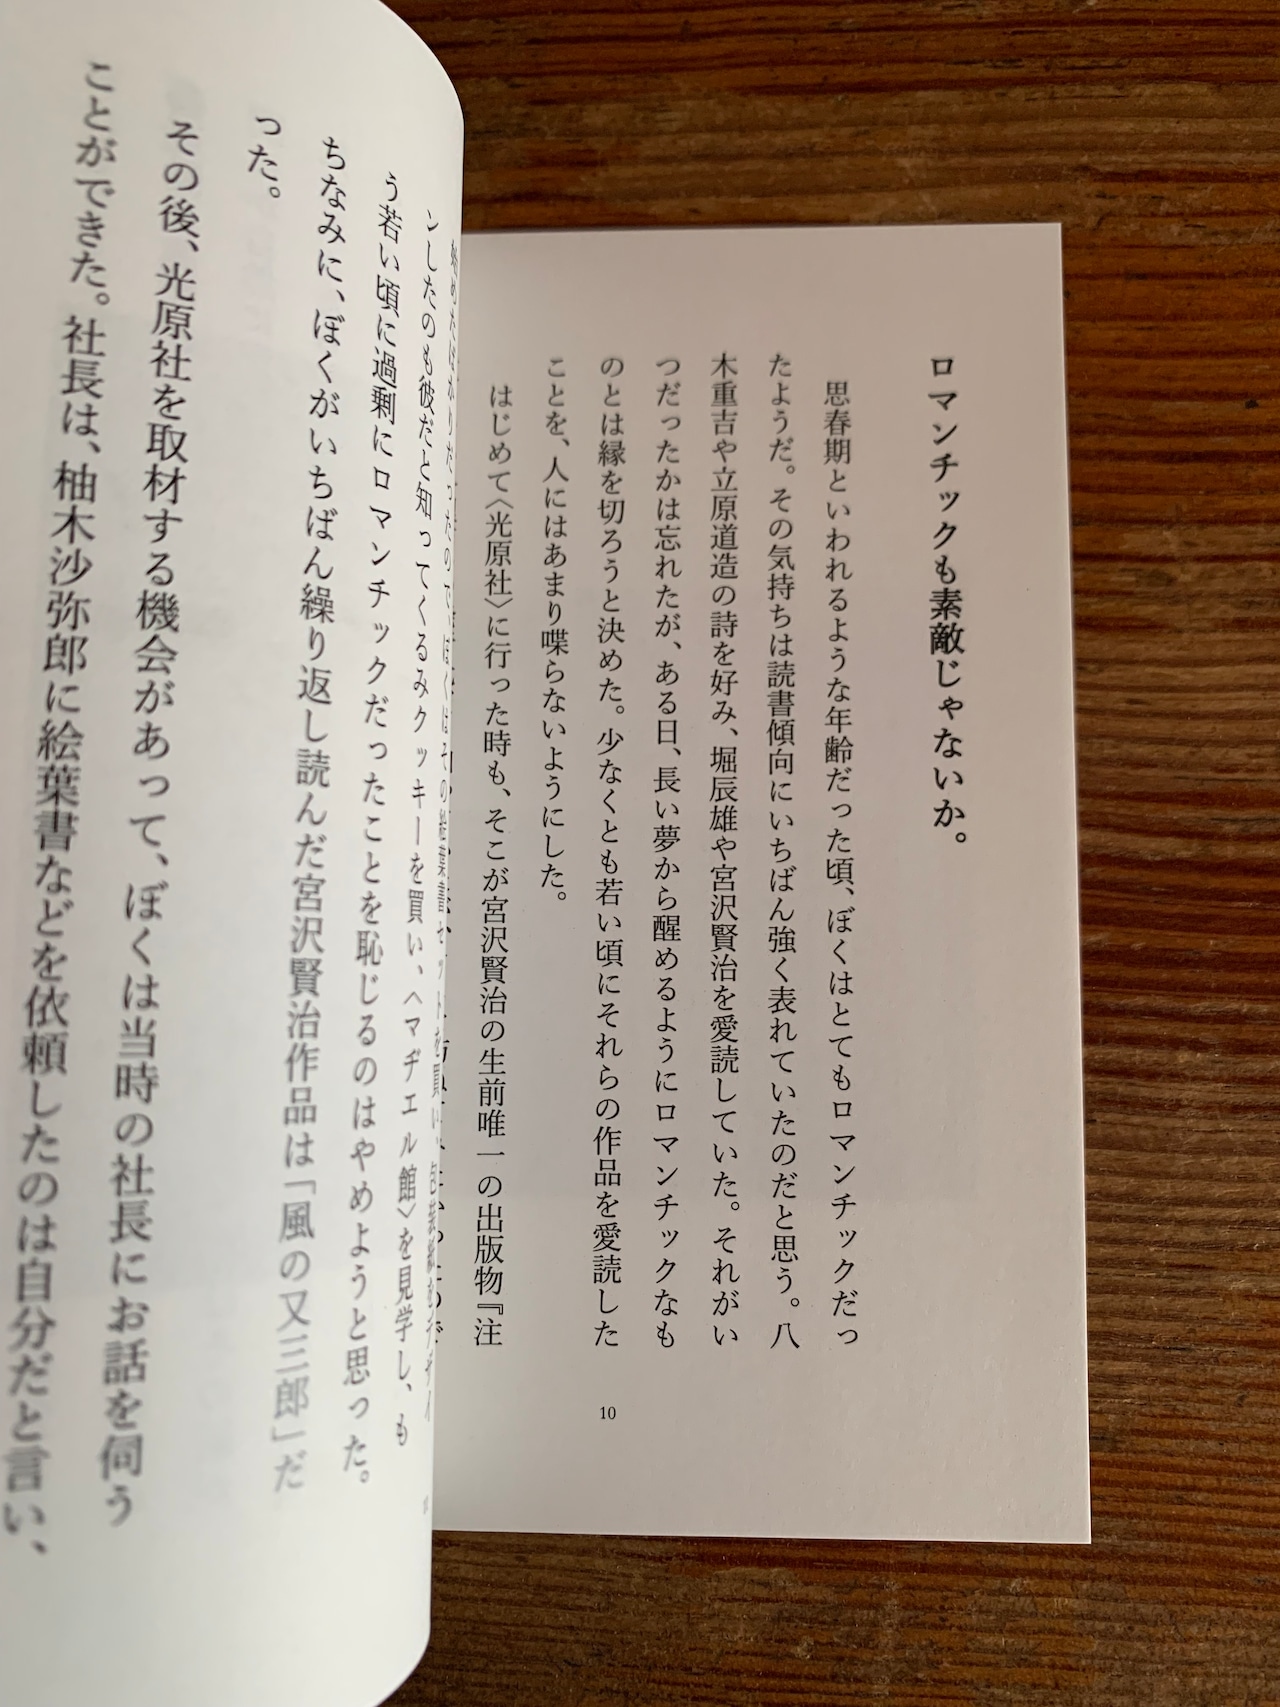 ロマンチックも素敵じゃないか。
思春期といわれるような年齢だった頃、ぼくはとてもロマンチックだっ
たようだ。その気持ちは読書傾向にいちばん強く表れていたのだと思う。八
木重吉や立原道造の詩を好み、堀辰雄や宮沢賢治を愛読していた。それがい
つだったかは忘れたが、ある日、長い夢から醒めるようにロマンチックなも
のとは縁を切ろうと決めた。少なくとも若い頃にそれらの作品を愛読した
ことを、人にはあまり喋らないようにした。
はじめて〈光原社〉に行った時も、そこが宮沢賢治の生前唯一の出版物『注
10
始めたばかりだったので、ぼくはその絵葉書セットを買い、包装紙をデザイ
ンしたのも彼だと知ってくるみクッキーを買い、〈マヂエル館〉を見学し、も
う若い頃に過剰にロマンチックだったことを恥じるのはやめようと思った。
ちなみに、ぼくがいちばん繰り返し読んだ宮沢賢治作品は「風の又三郎」だ
った。
その後、光原社を取材する機会があって、ぼくは当時の社長にお話を伺う
ことができた。社長は、柚木沙弥郎に絵葉書などを依頼したのは自分だと言い、